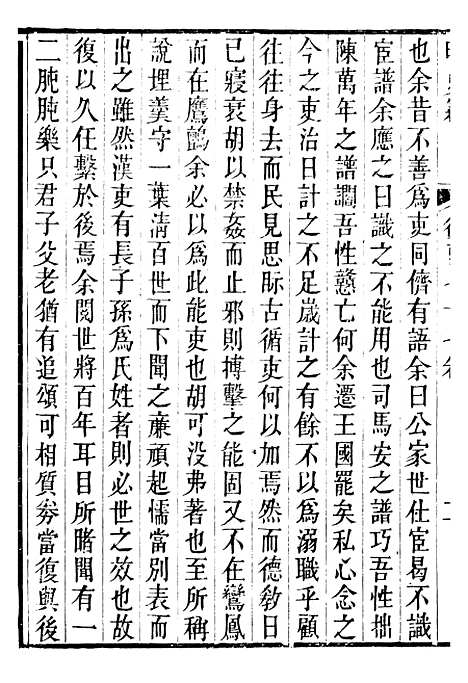 也余昔不善爲吏同儕有語余曰公家世仕宦曷不識
宦譜余應之曰識之不能用也司馬安之譜巧吾性拙
陳萬年之譜讇吾性戇亡何余遷王國罷矣私心念之
今之吏治日計之不足歲計之有餘不以爲溺職乎顧
往往身去而民見思眎古循吏何以加焉然而德敎日
已寢衰胡以禁姦而止邪則搏擊之能固又不在鸞鳳
而在鷹鸇余必以爲此能吏也胡可没弗著也至所稱
說埋羹守一葉清百世而下聞之亷頑起懦當別表而
出之雖然漢吏有長子孫爲氏姓者則必世之效也故
復以久任繫於後焉余閱世將百年耳目所睹聞有一
二肫肫樂只君子父老猶有追頌可相質劵當復與後